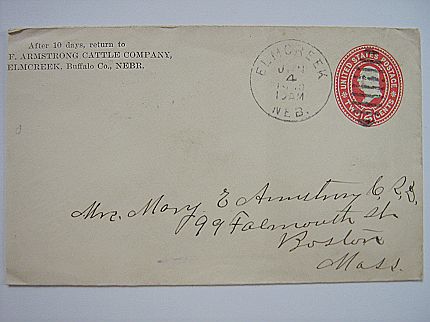 After 10 days, return to
F. ARMSTRONG CATTLE COMPANY,
ELMCREEK, Buffalo Co., NEBR.
ELMCREEK
JAN
4
10AM
NEB.
UNITED STATES POSTAGE
TWO CENTS
Mrs. Mary E Armstrong C.S.
99 Falmouth St
Boston
Mass.